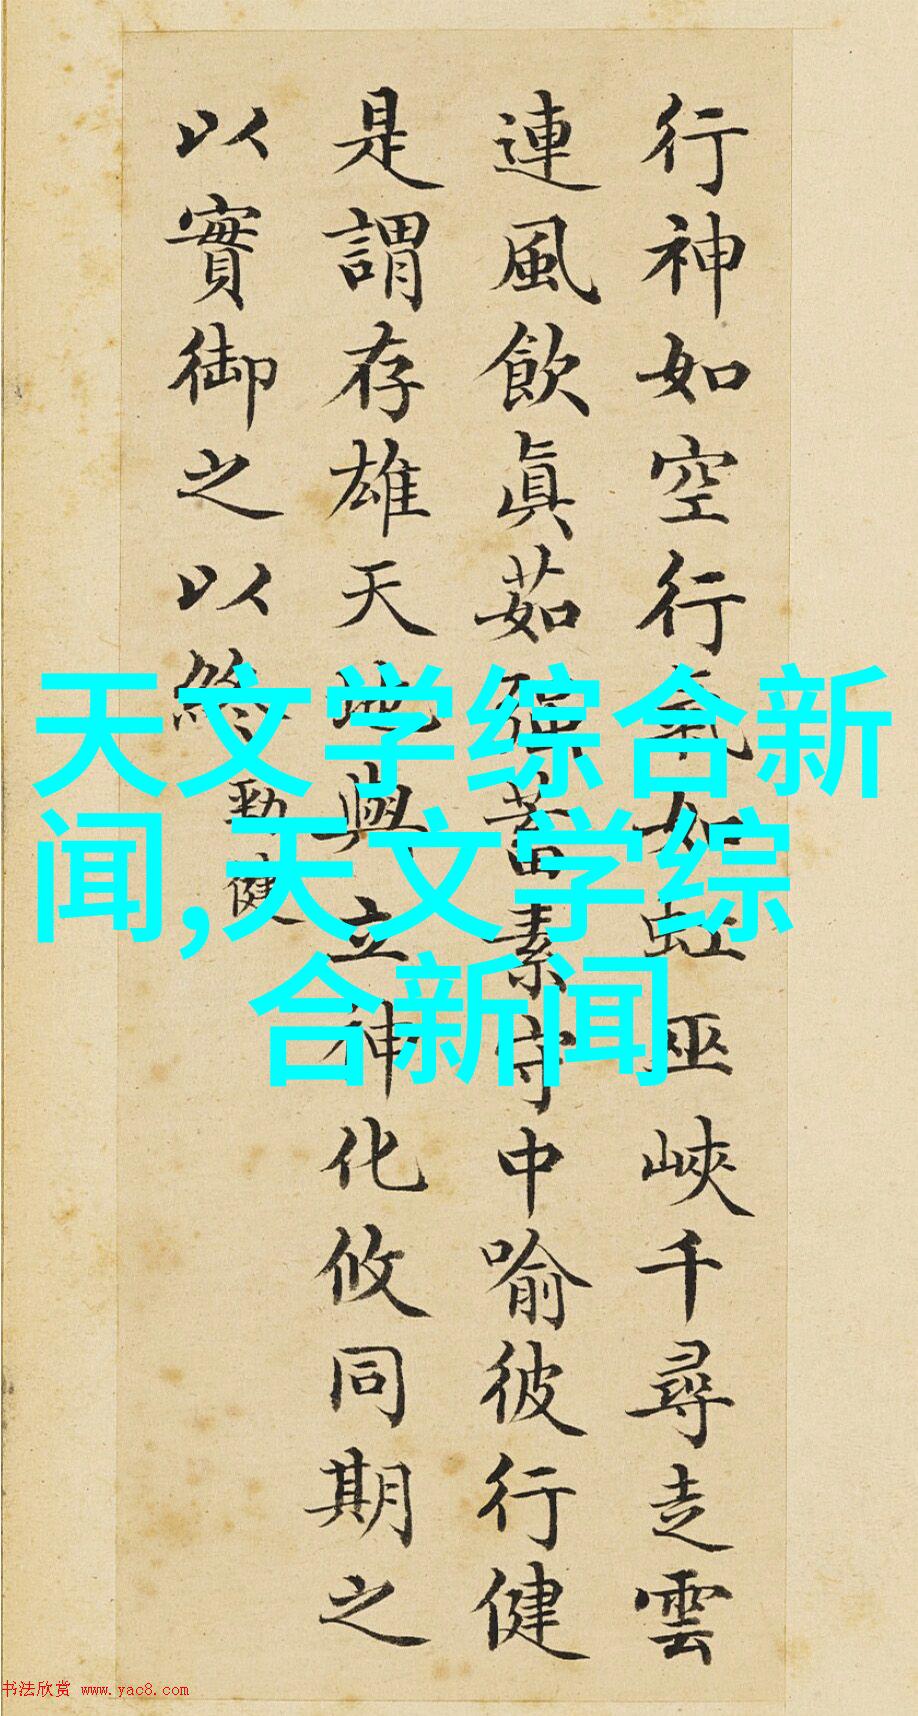 行神如空行氣如虹巫峽千尋走雲
連風飲眞茹強蓄素守中喻彼行健
是謂存雄天地與立神化攸同期之
以實御之以終
勁健
天文学综合新
闻,天文学综
合新闻
书法欣赏 www.yac8.com